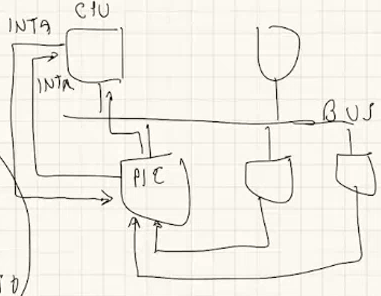 CPU
INTA
INTR
BUS
PIC